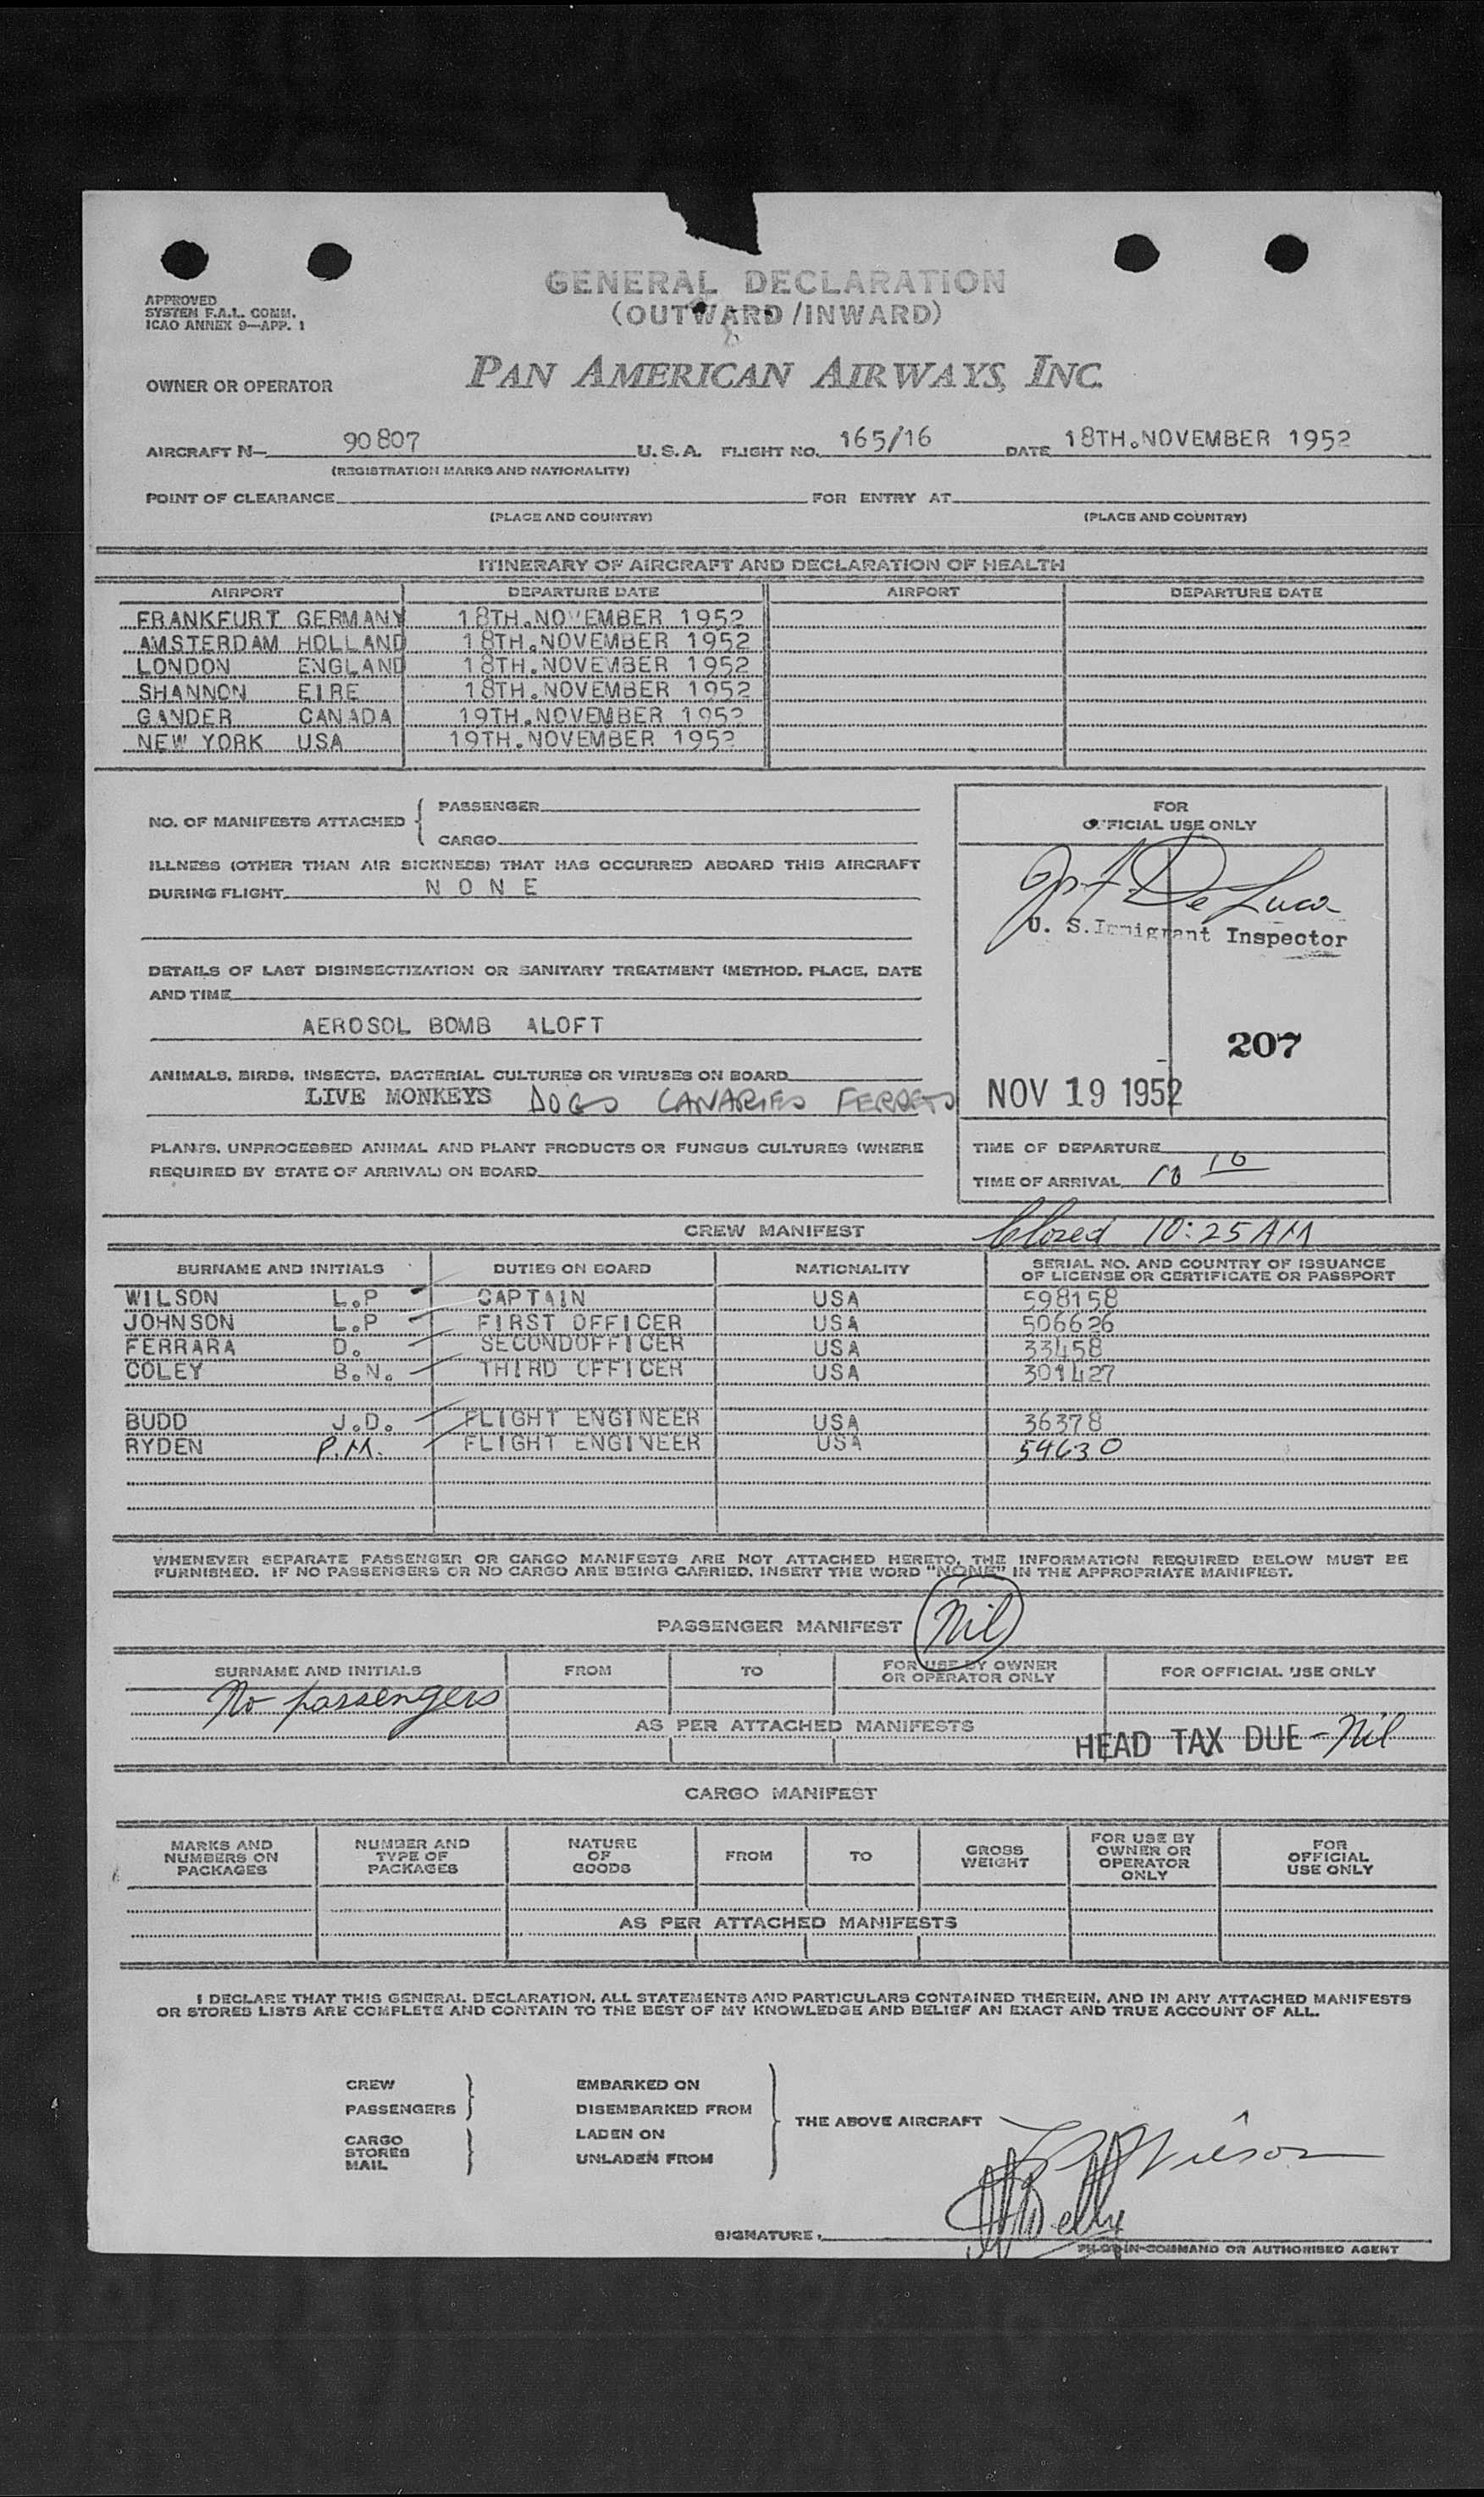 GENERAL DECLARATION
(OUTWARD/INWARD)
APPROVED
SYSTEM F.A.L. COMM.
ICAO ANNEX 9—APP. 1
OWNER OR OPERATOR PAN AMERICAN AIRWAYS, INC.
AIRCRAFT N— 90807 U.S.A. FLIGHT NO. 165/16 DATE 18TH.NOVEMBER 1952
(REGISTRATION MARKS AND NATIONALITY)
POINT OF CLEARANCE FOR ENTRY AT
(PLACE AND COUNTRY) (PLACE AND COUNTRY)
ITINERARY OF AIRCRAFT AND DECLARATION OF HEALTH
AIRPORT DEPARTURE DATE AIRPORT DEPARTURE DATE
FRANKFURT GERMANY 18TH.NOVEMBER 1952
AMSTERDAM HOLLAND 18TH.NOVEMBER 1952
LONDON ENGLAND 18TH.NOVEMBER 1952
SHANNON EIRE 18TH.NOVEMBER 1952
GANDER CANADA 19TH.NOVEMBER 1952
NEW YORK USA 19TH.NOVEMBER 1952
NO. OF MANIFESTS ATTACHED { PASSENGER
CARGO
FOR
OFFICIAL USE ONLY
ILLNESS (OTHER THAN AIR SICKNESS) THAT HAS OCCURRED ABOARD THIS AIRCRAFT
DURING FLIGHT N O N E
De Luca
U. S. Immigrant Inspector
DETAILS OF LAST DISINSECTIZATION OR SANITARY TREATMENT (METHOD, PLACE, DATE
AND TIME
AEROSOL BOMB ALOFT
207
ANIMALS, BIRDS, INSECTS, BACTERIAL CULTURES OR VIRUSES ON BOARD
LIVE MONKEYS DOGS CANARIES FERRETS
NOV 19 1952
PLANTS, UNPROCESSED ANIMAL AND PLANT PRODUCTS OR FUNGUS CULTURES (WHERE
REQUIRED BY STATE OF ARRIVAL) ON BOARD
TIME OF DEPARTURE
TIME OF ARRIVAL 10 10
CREW MANIFEST Closed 10:25 AM
SURNAME AND INITIALS DUTIES ON BOARD NATIONALITY SERIAL NO. AND COUNTRY OF ISSUANCE
OF LICENSE OR CERTIFICATE OR PASSPORT
WILSON L.P CAPTAIN USA 598158
JOHNSON L.P FIRST OFFICER USA 506626
FERRARA D. SECONDOFFICER USA 33458
COLEY B.N. THIRD OFFICER USA 301427
BUDD J.D. FLIGHT ENGINEER USA 36378
RYDEN P.M. FLIGHT ENGINEER USA 54630
WHENEVER SEPARATE PASSENGER OR CARGO MANIFESTS ARE NOT ATTACHED HERETO, THE INFORMATION REQUIRED BELOW MUST BE
FURNISHED. IF NO PASSENGERS OR NO CARGO ARE BEING CARRIED, INSERT THE WORD "NONE" IN THE APPROPRIATE MANIFEST.
PASSENGER MANIFEST Nil
SURNAME AND INITIALS FROM TO FOR USE BY OWNER
OR OPERATOR ONLY FOR OFFICIAL USE ONLY
No passengers
AS PER ATTACHED MANIFESTS
HEAD TAX DUE - Nil
CARGO MANIFEST
MARKS AND
NUMBERS ON
PACKAGES
NUMBER AND
TYPE OF
PACKAGES
NATURE
OF
GOODS
FROM
TO
GROSS
WEIGHT
FOR USE BY
OWNER OR
OPERATOR
ONLY
FOR
OFFICIAL
USE ONLY
AS PER ATTACHED MANIFESTS
I DECLARE THAT THIS GENERAL DECLARATION, ALL STATEMENTS AND PARTICULARS CONTAINED THEREIN, AND IN ANY ATTACHED MANIFESTS
OR STORES LISTS ARE COMPLETE AND CONTAIN TO THE BEST OF MY KNOWLEDGE AND BELIEF AN EXACT AND TRUE ACCOUNT OF ALL.
CREW
PASSENGERS }
CARGO
STORES
MAIL }
EMBARKED ON
DISEMBARKED FROM
LADEN ON
UNLADEN FROM }
THE ABOVE AIRCRAFT
L P Wilson
SIGNATURE
PILOT-IN-COMMAND OR AUTHORISED AGENT